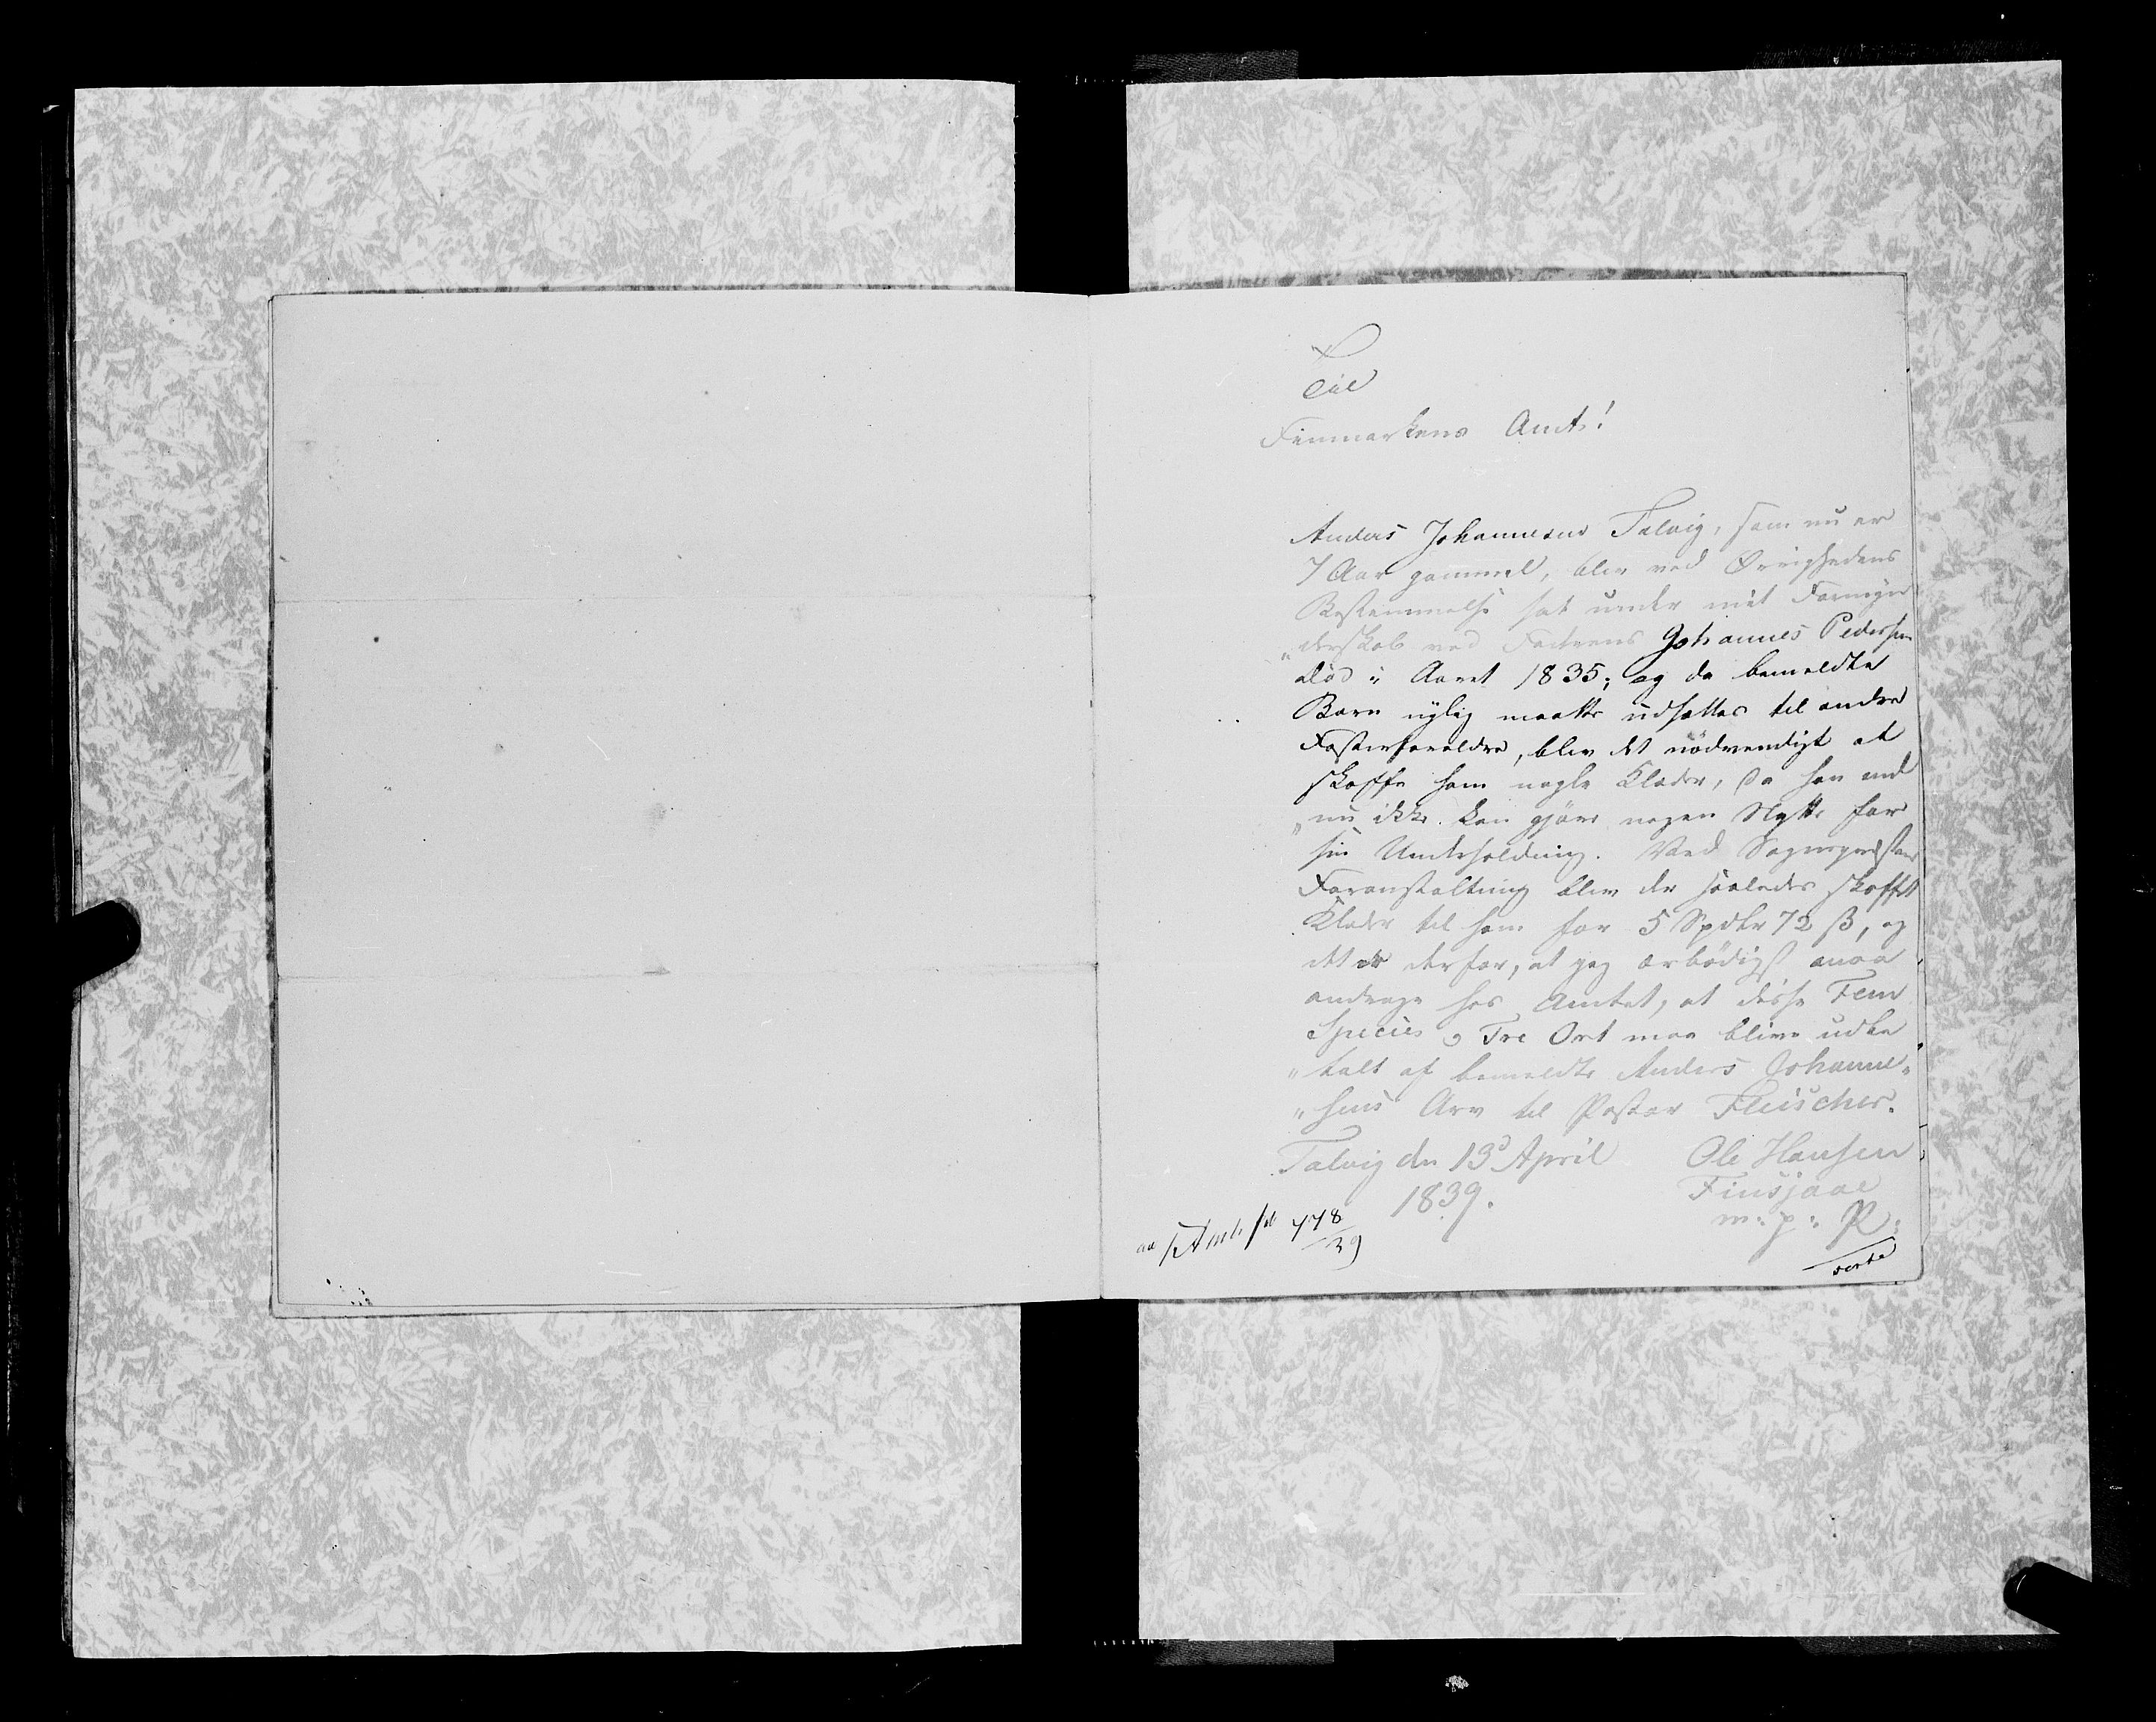 Til
Finmarkens Amt!
Anders Johannesens Talvig, som nu er
7 Aar gammel, blev ved Øvrighedens
Bestemmelse sat under mit Formyn
"derskab ved Faderens Johannes Pedersen
død i Aaret 1835; og da bemeldte
Barn nylig maatte udsættes til andre
Fosterforældre, blev det nødvendigt at
skaffe ham nogle Klæder, da han end
"nu ikke kan gjøre nogen Nytte for
sin Underholdning. Ved Sognepræstens
Foranstaltning blev der saaledes skaffet
Klæder til ham for 5 Spdlr 72 ß, og
det er derfor, at jeg ærbødigst maa
andrage hos Amtet, at disse Fem
Species og Tre Ort maa blive udbe
"talt af bemeldte Anders Johanne"
"sens Arv til Pastor Fleischer.
Talvig den 13d April Ole Hansen
1839. Finsjaae
m: p: P:
778/39
verte